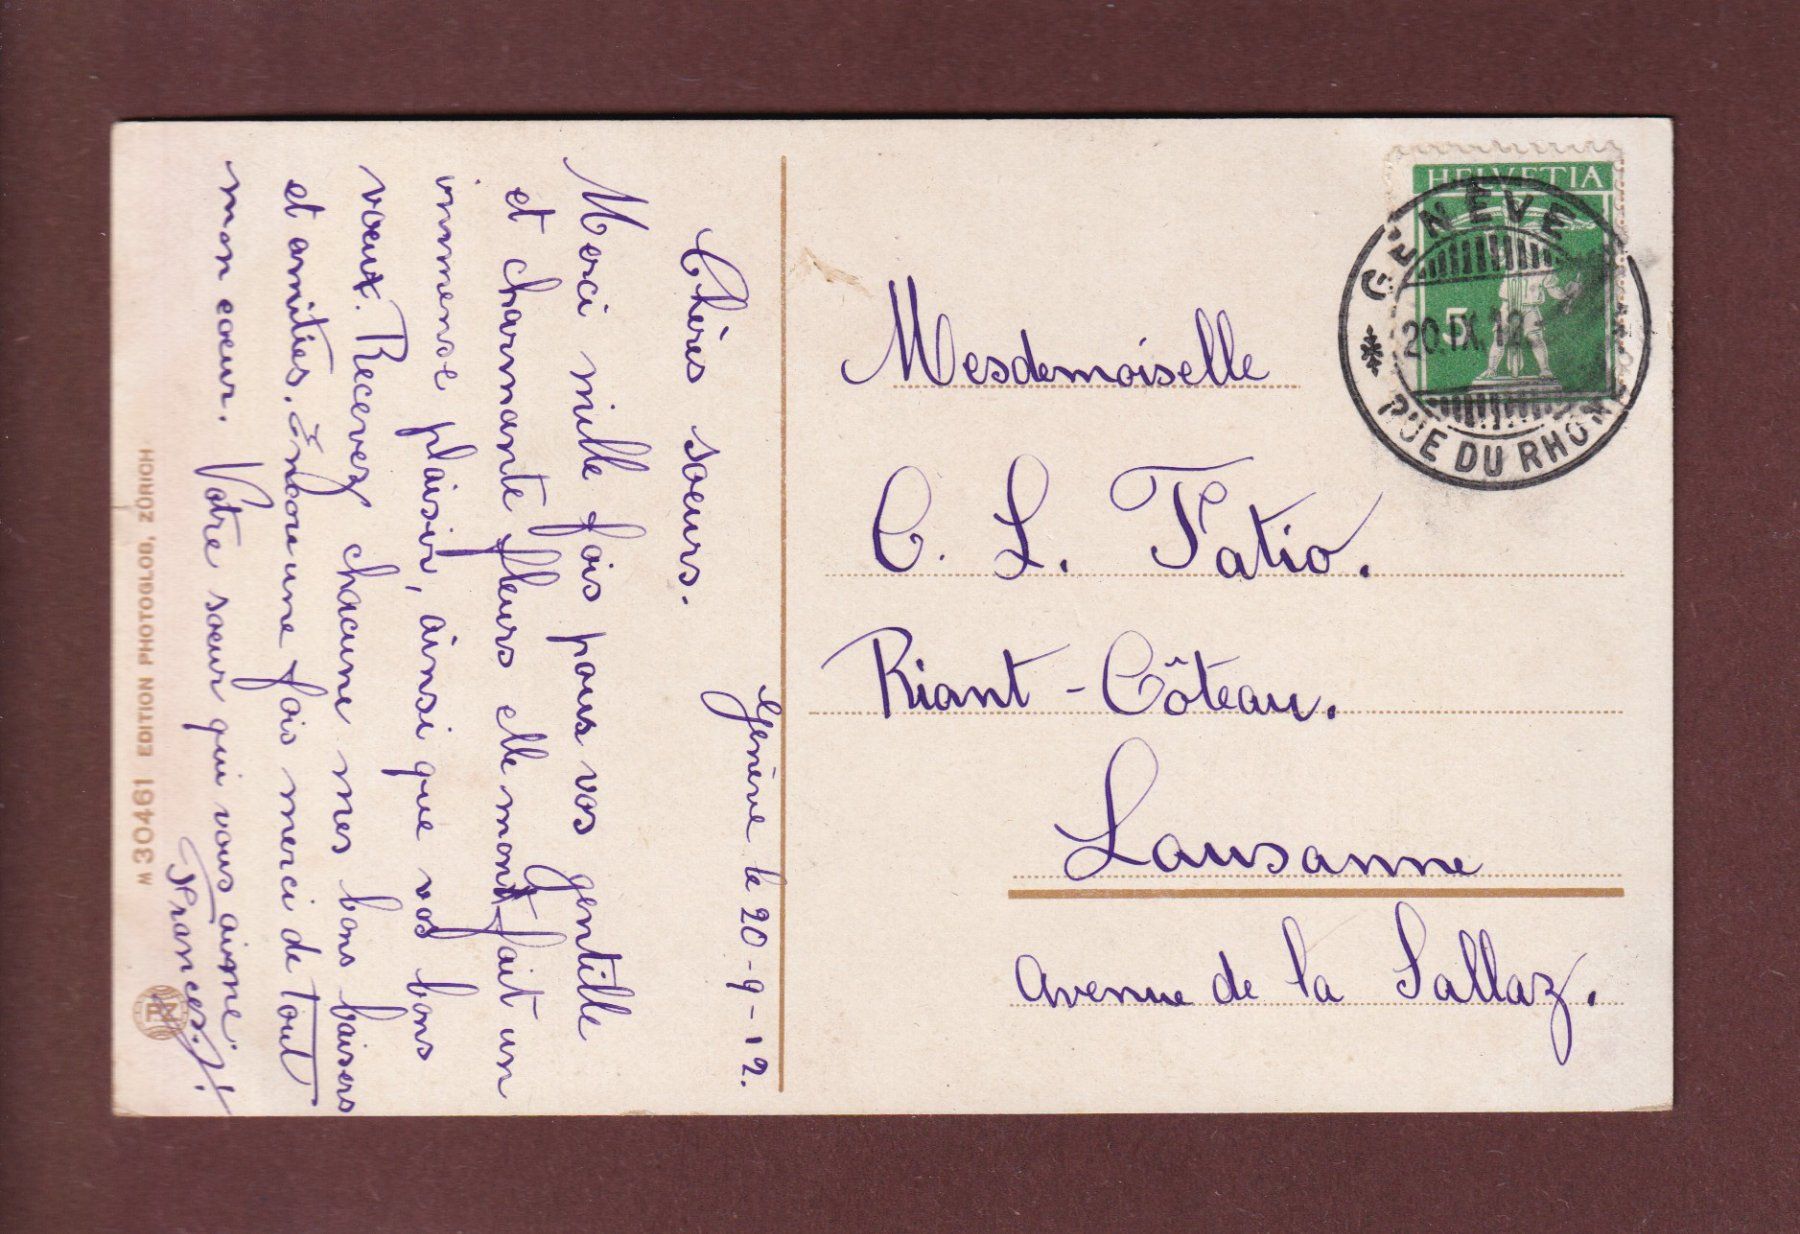 Genève le 20-9-12.
Chères soeurs.
Merci mille fois pour vos gentille
et charmante fleurs elle mont fait un
immense plaisir, ainsi que vos bons
voeux. Recevez chacune mes bons baisers
et amitiés. Encore une fois merci de tout
mon coeur. Votre soeur qui vous aime.
Frances!
M 30461 EDITION PHOTOGLOB, ZÜRICH
PZ
HELVETIA
5
GENÈVE
20.IX.12
RUE DU RHÔNE
Mesdemoiselle
C. L. Fatio.
Riant-Côteau.
Lausanne
Avenue de la Sallaz.